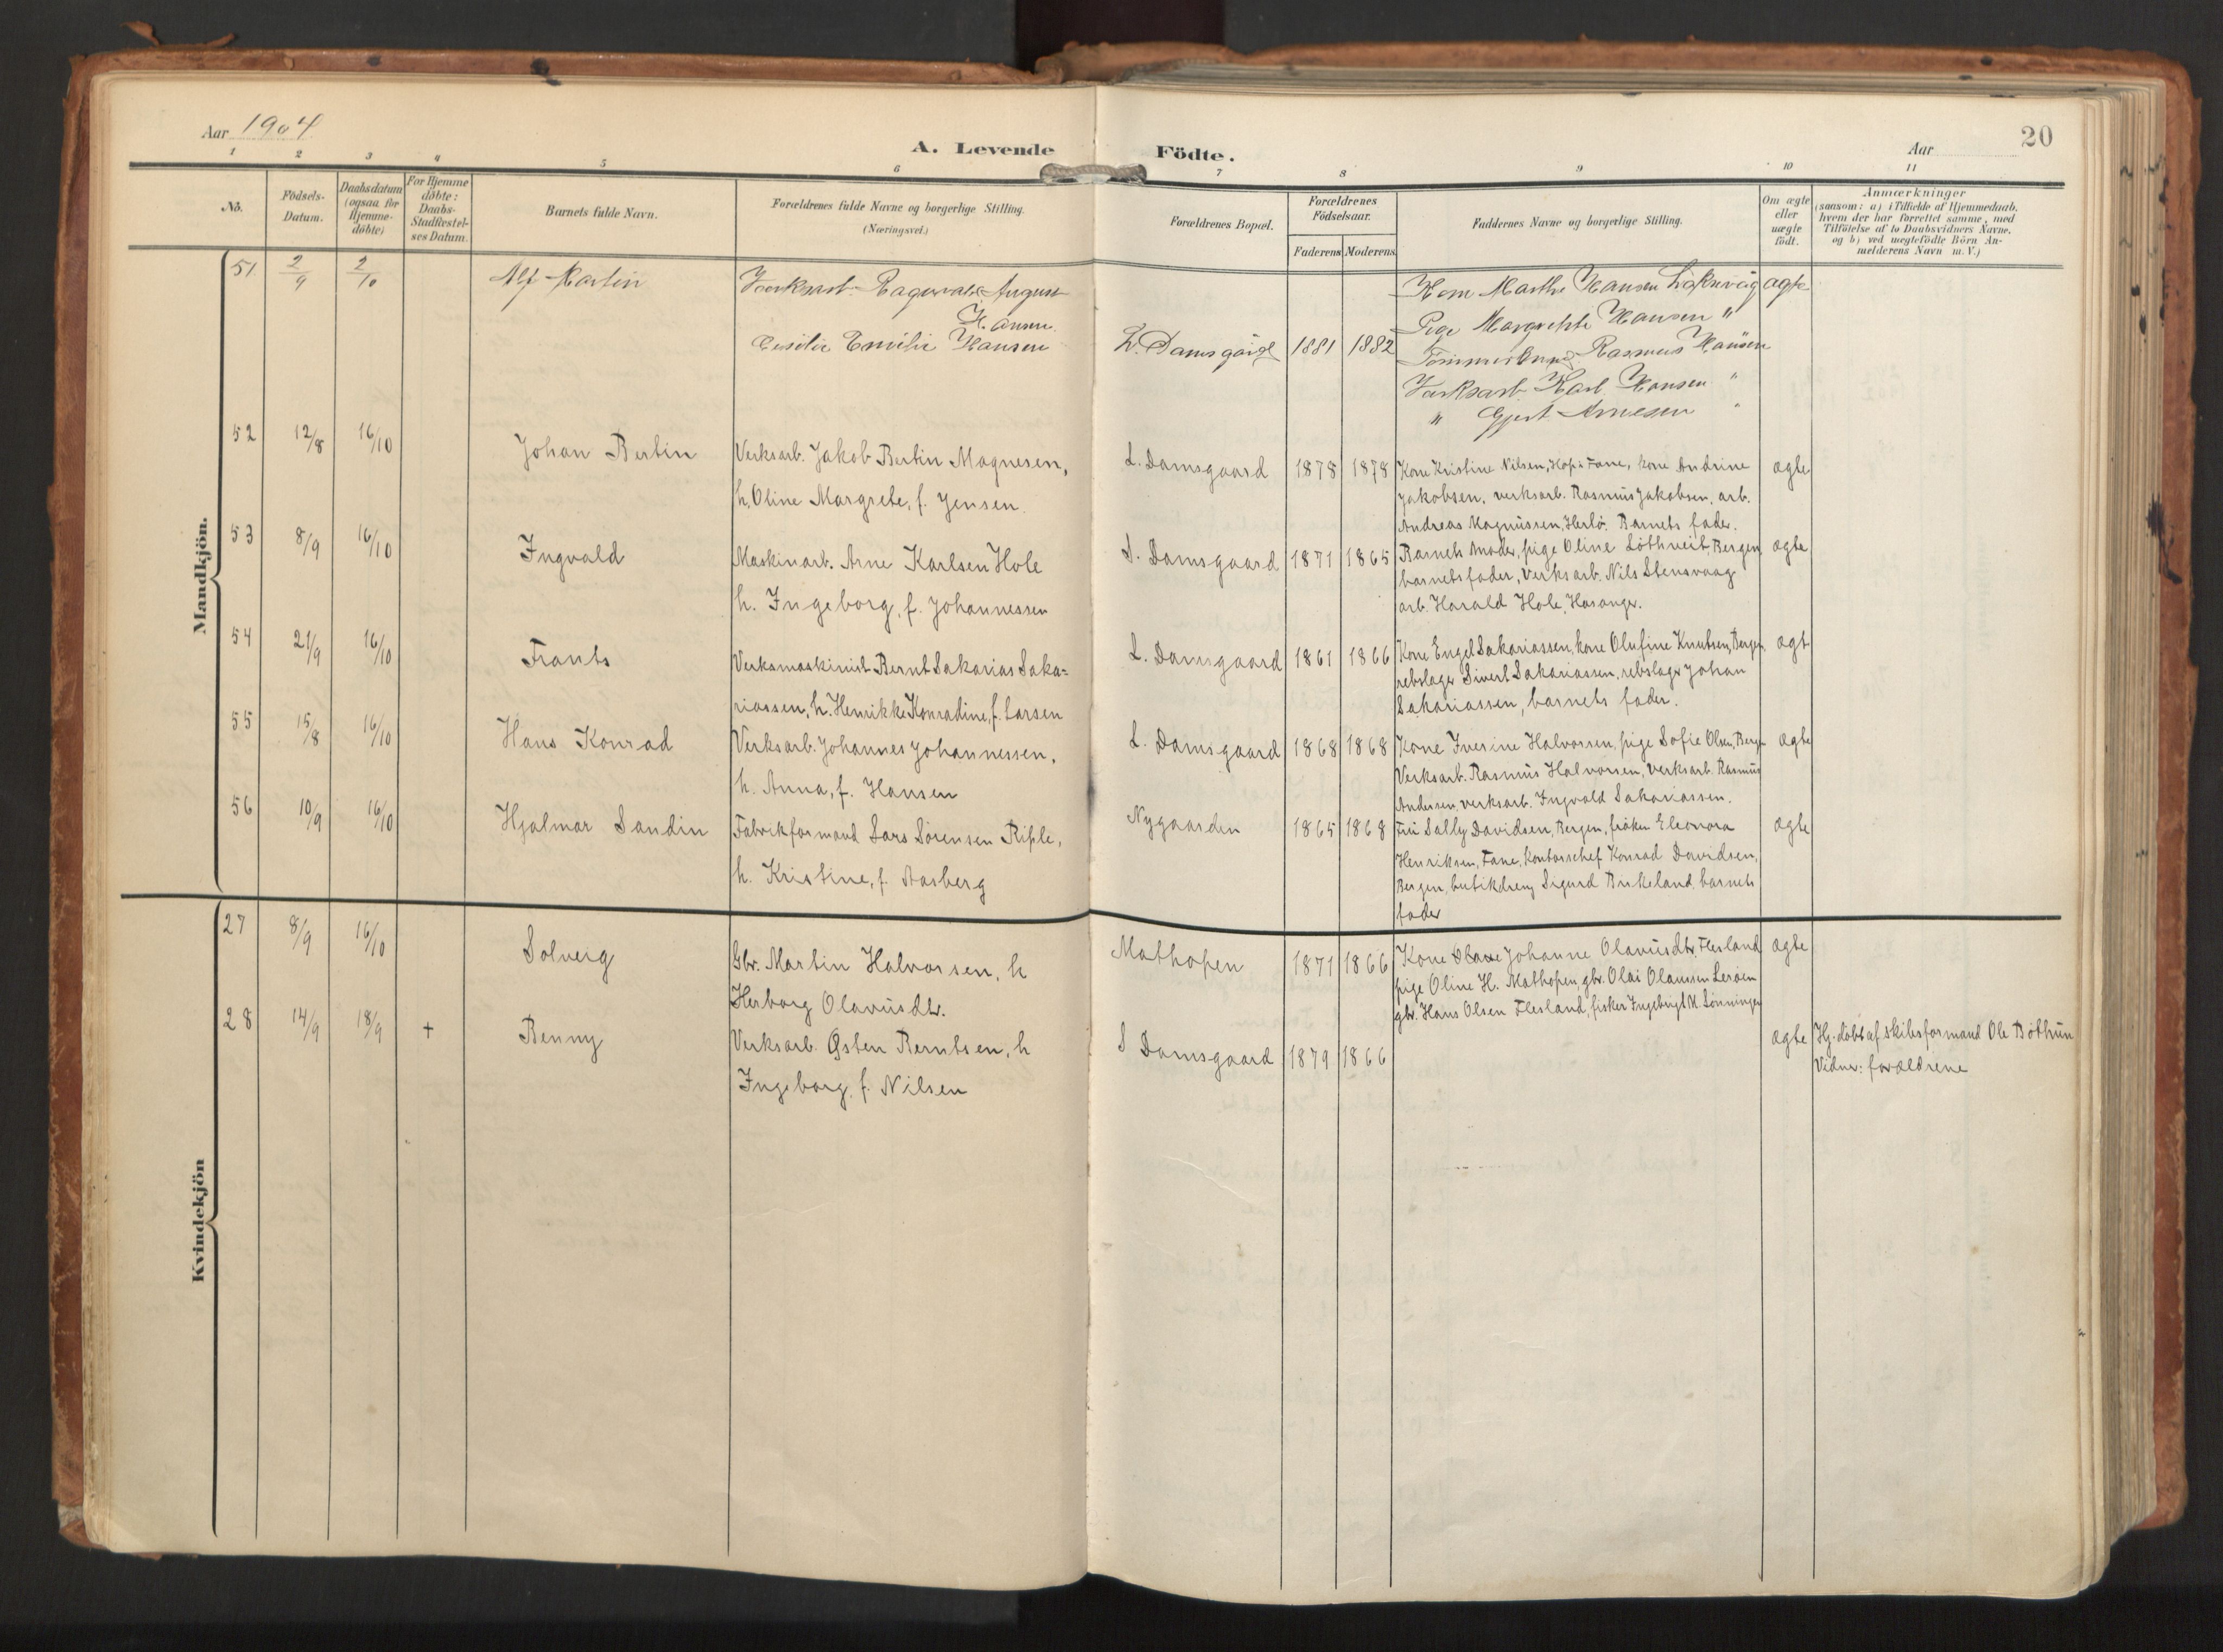 Aar 1904
A. Levende Födte.
Aar
20
1 2 3 4 5 6 7 8 9 10 11
No.
Födsels-Datum.
Daabsdatum (ogsaa for Hjemme-döbte)
For Hjemme döbte: Daabs-Stadfæstel-ses Datum.
Barnets fulde Navn.
Forældrenes fulde Navne og borgerlige Stilling. (Næringsvei.)
Forældrenes Bopæl.
Forældrenes Födselsaar.
Faderens Moderens
Faddernes Navne og borgerlige Stilling.
Om ægte eller uægte födt.
Anmærkninger
(saasom: a) i Tilfælde af Hjemmedaab,
hvem der har forrettet samme, med
Tilföielse af to Daabsvidners Navne,
og b) ved uægtefödte Börn An-
melderens Navn m. V.)
Mandkjön.
51 2/9 2/10 Alf Martin
Værksarb. Ragnvald August
Hansen
Cecilie Emilie Hansen
L. Damsgård 1881 1882
Kone Marthe Hansen Laksevåg ægte
Pige Margrethe Hansen "
Tømmermand Rasmus Hansen
Værksarb Karl Hansen "
" Gjert Arnesen "
52 12/8 16/10 Johan Bertin
Verksarb. Jakob Bertin Magnesen,
h. Oline Margrete, f. Jensen.
L. Damsgaard 1878 1878
Kone Kristine Nilsen, Hop i Fane, kone Andrine ægte
Jakobsen, verksarb. Rasmus Jakobsen, arb.
Andreas Magnussen, Herlö. Barnets fader.
53 8/9 16/10 Ingvald
Maskinarb. Arne Karlsen Hole
h. Ingeborg, f. Johannessen
L. Damsgaard 1871 1865
Barnets moder, pige Oline Löthveit, Bergen ægte
barnets fader, verksarb. Nils Stensvaag
arb. Harald Hole, Hosanger.
54 21/9 16/10 Frants
Verksmaskinist Bernt Sakarias Saka=
riassen, h. Henrikke Konradine, f. Larsen
L. Damsgaard 1861 1866
Kone Engel Sakariassen, kone Olufine Knutsen, Bergen ægt
rebslager Sivert Sakariassen, rebslager Johan
Sakariassen, barnets fader.
55 15/8 16/10 Hans Konrad
Verksarb. Johannes Johannessen,
h. Anna, f. Hansen
L. Damsgaard 1868 1868
Kone Ivesine Halvorsen, pige Sofie Olsen, Bergen ægte
Verksarb. Rasmus Halvorsen, verksarb. Rasmus
Andersen, verksarb. Ingvald Sakariassen.
56 10/9 16/10 Hjalmar Sandin
Fabrikformand Lars Sörensen Riple,
h. Kristine, f. Aasberg
Nygaarden 1865 1868
Fru Sally Davidsen, Bergen, fröken Eleonora ægte
Henriksen, Fane, kontorschef Konrad Davidsen,
Bergen, butikdreng Sigurd Birkeland, barnets
fader
Kvindekjön
27 8/9 16/10 Solveig
Gbr. Martin Halvorsen, h
Herborg Olavusdtr.
Mathopen 1871 1866
Kone Johanne Olavusdtr, Flesland ægte
pige Oline H. Mathopen, gbr. Olai Olaussen Leröen
gbr. Hans Olsen Flesland, fisker Ingebrigt M. Lönningen
28 14/9 18/9 + Benny
Verksarb. Østen Berntsen, h
Ingeborg, f. Nilsen
L Damsgaard 1879 1866
ægte Hj. döbt af skibsformand Ole Böthun
Vidner: forældrene